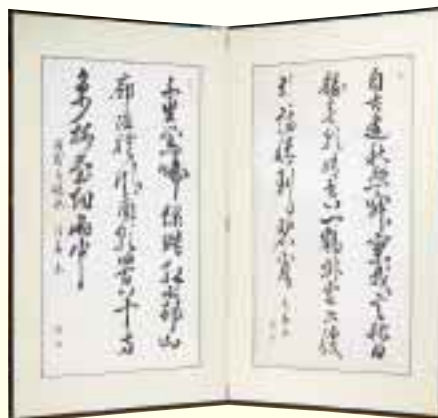 自古逢秋悲寂寥我言秋日
勝春朝晴空一鶴排雲上便
引詩情到碧霄
千里鶯啼綠映紅水村山
郭酒旗風南朝四百八十寺
多少樓臺烟雨中